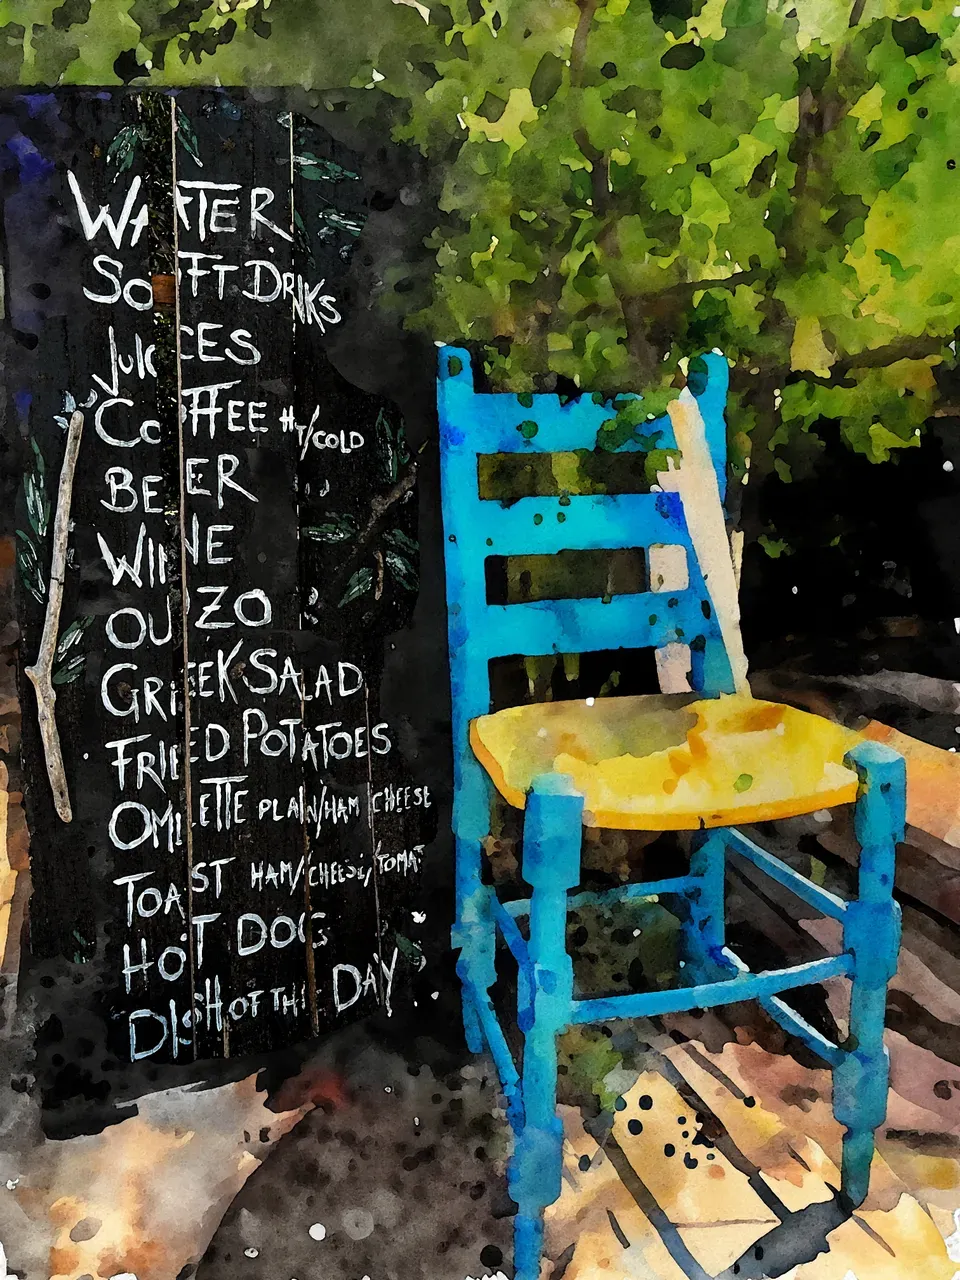 WATER
SOFT DRINKS
JUICES
COFFEE HT/COLD
BEER
WINE
OUZO
GREEK SALAD
FRIED POTATOES
OMLETTE PLAIN/HAM CHEESE
TOAST HAM/CHEESE/TOMAT
HOT DOG
DISH OF THE DAY